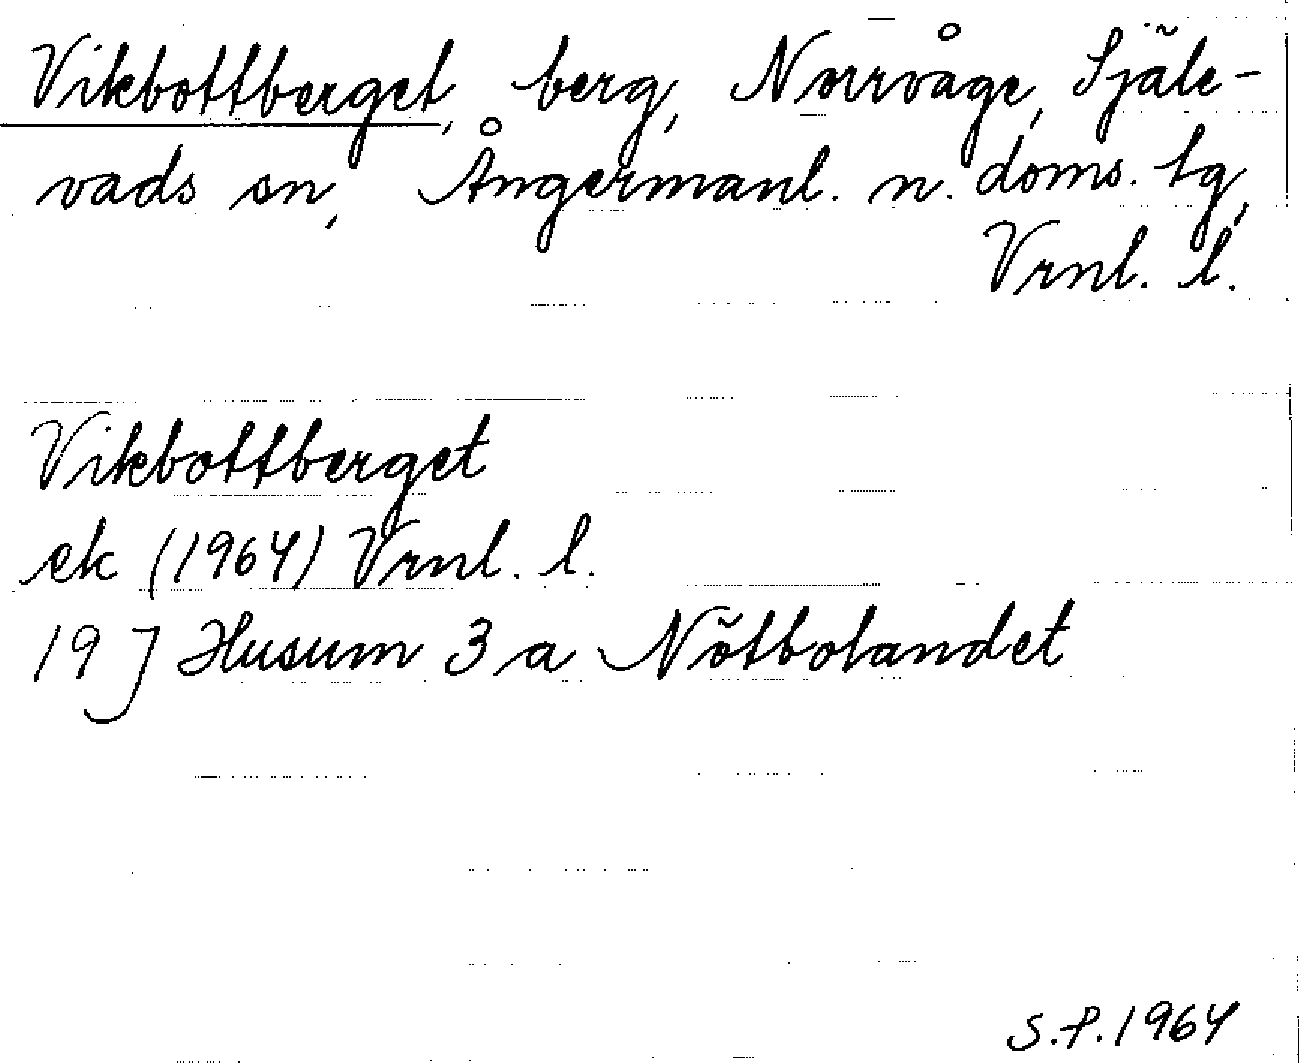 Vikbottberget, berg, Norrvåge, Själe-
vads sn, Ångermanl. n. doms. tg,
Vrnl. l.
Vikbottberget
ek (1964) Vrnl. l.
19 J Husum 3 a Nötbolandet
S.P. 1964